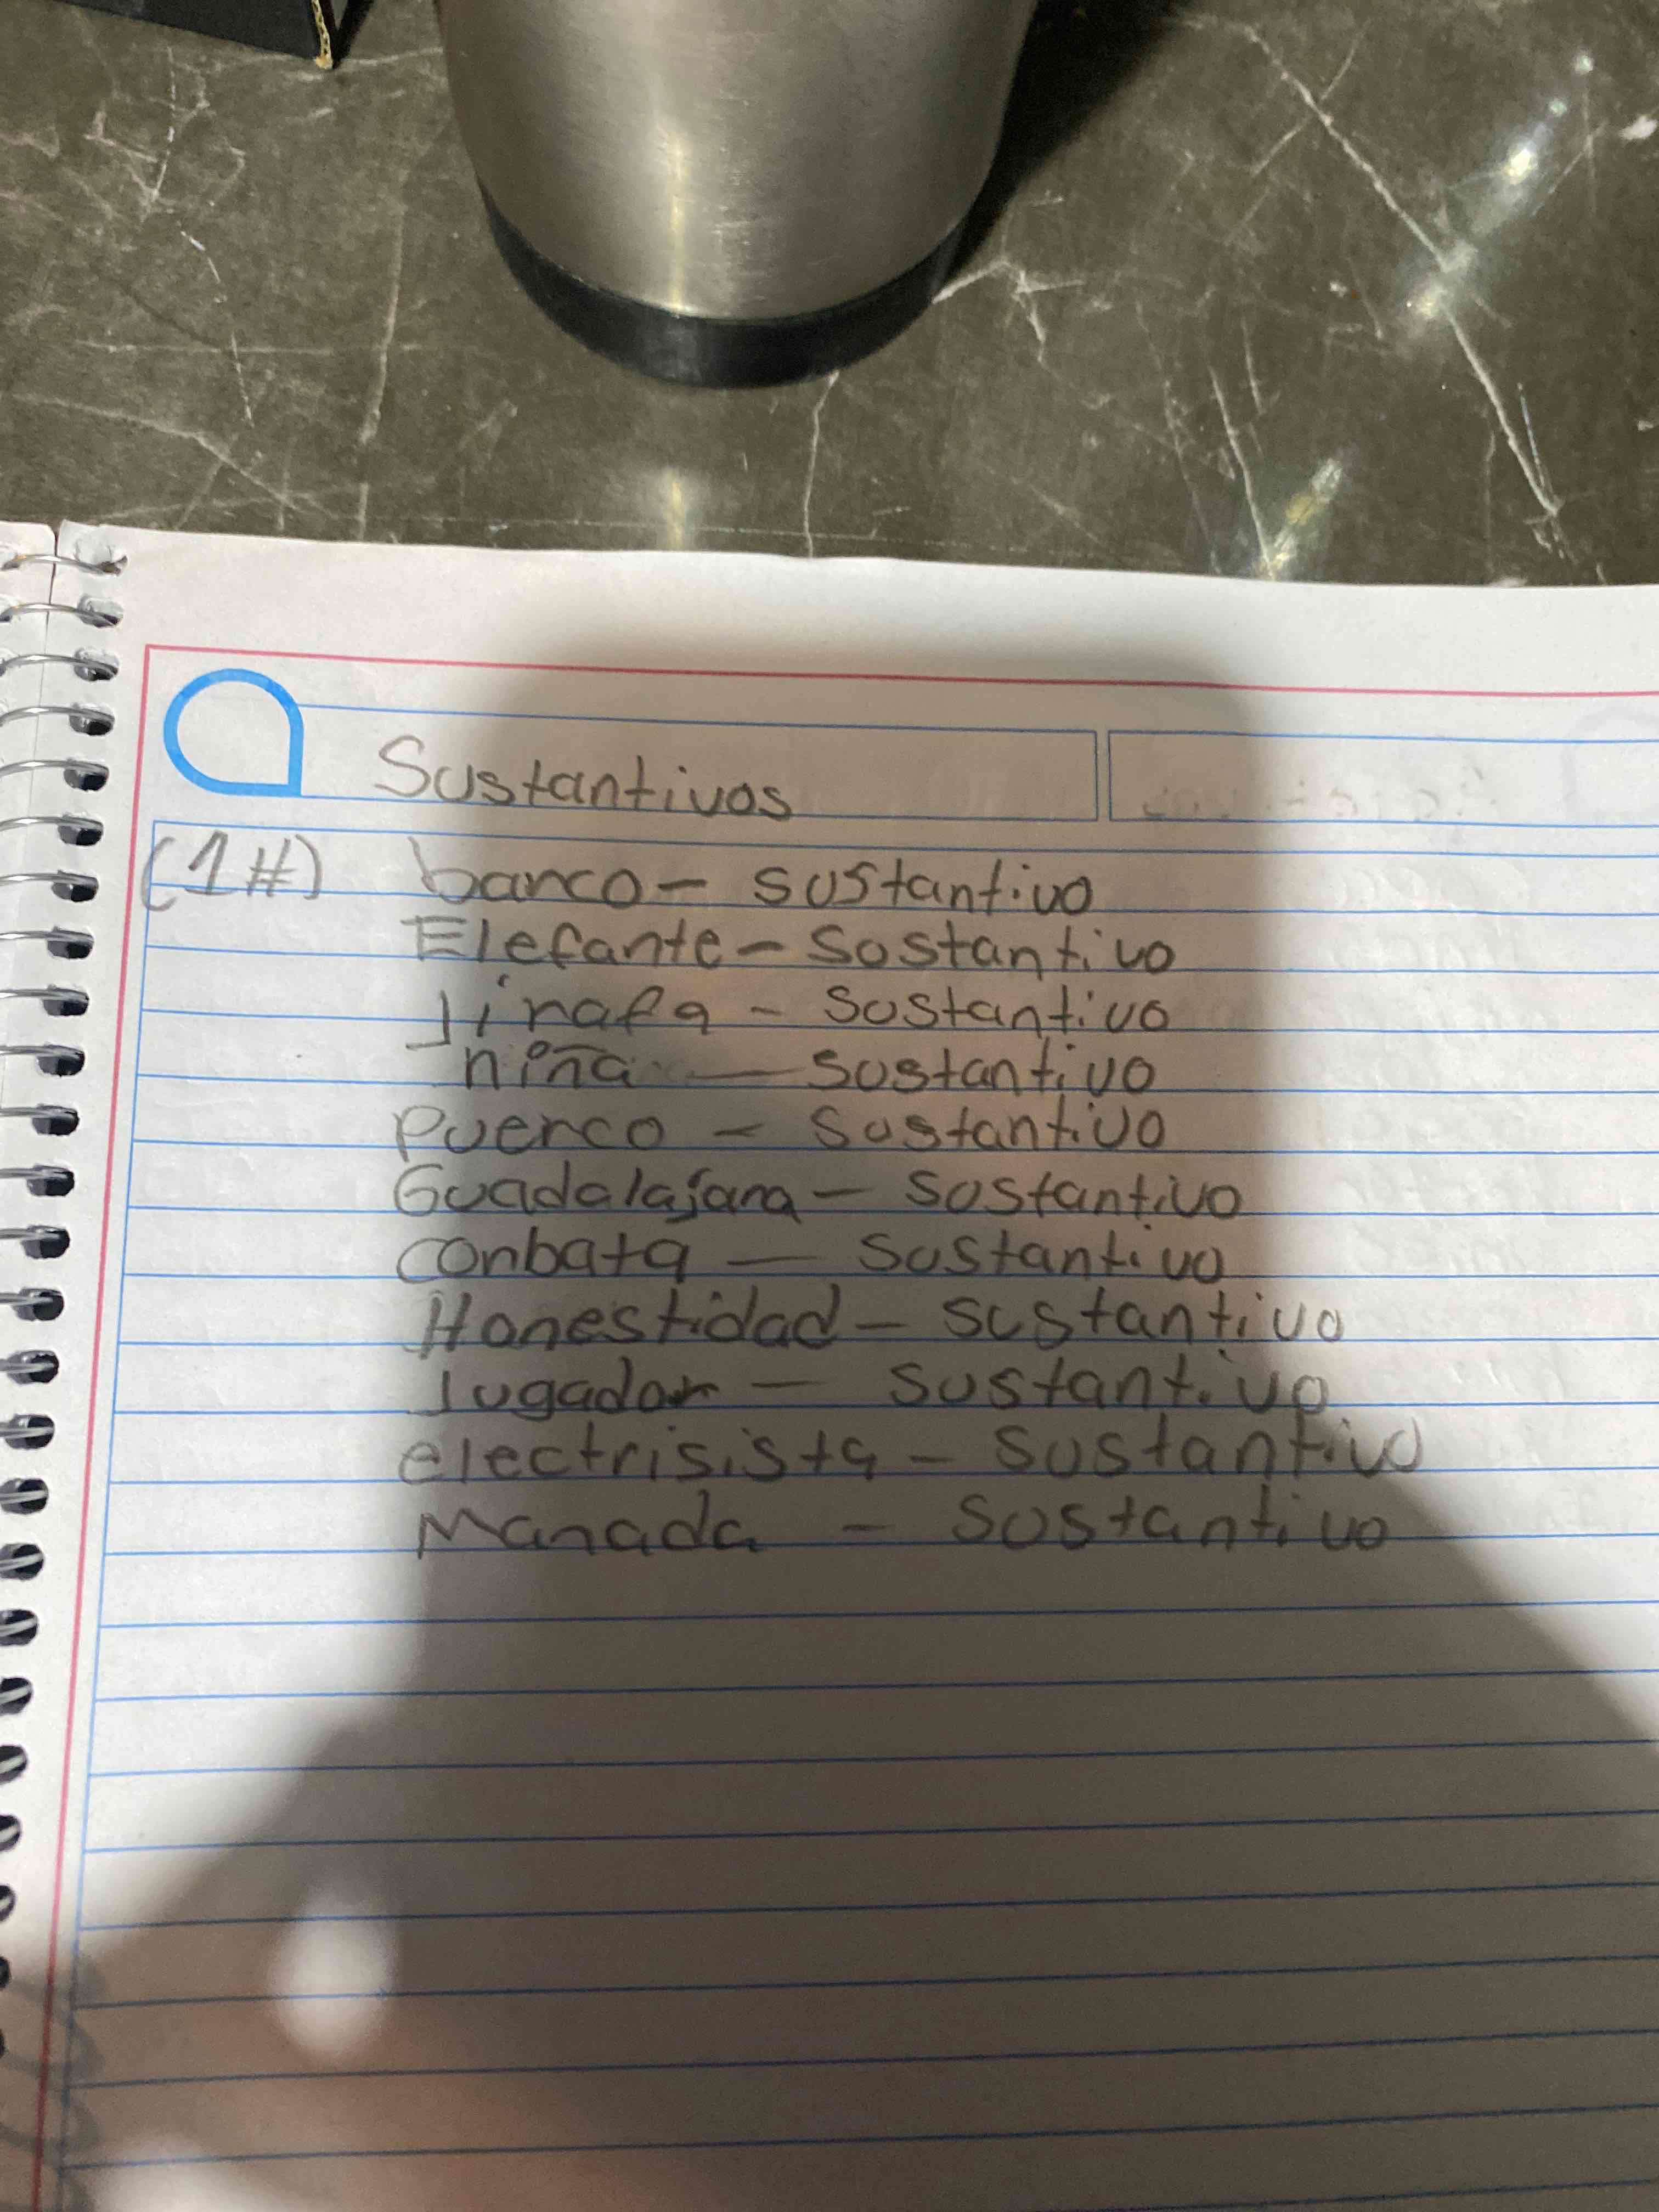 Sustantivos
(1#) banco - sustantivo
Elefante - Sustantivo
jirafa - Sustantivo
niña - sustantivo
puerco - sustantivo
Guadalajara - sustantivo
conbata - sustantivo
Honestidad - sustantivo
Jugador - sustantivo
electrisista - sustantivo
Manada - sustantivo